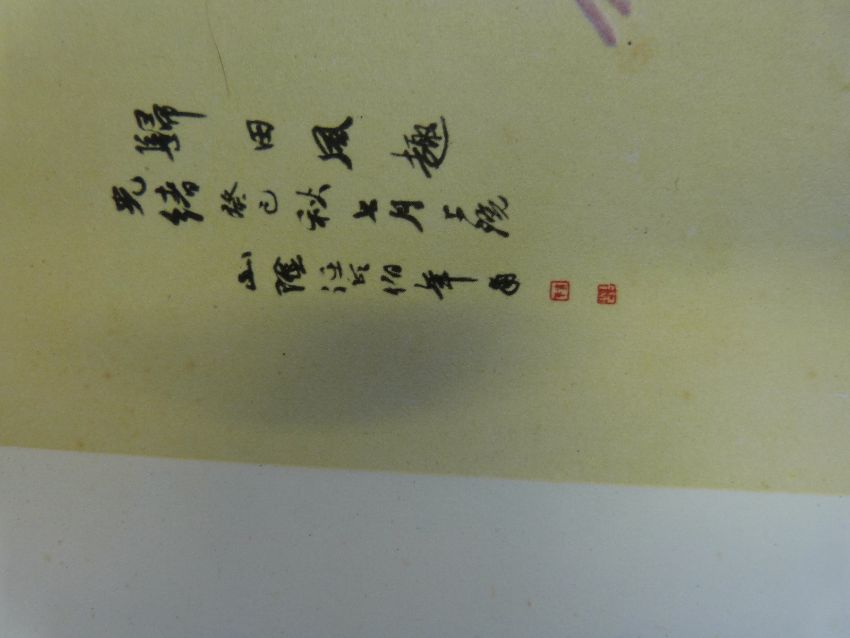 歸田風趣
光緒癸巳秋七月上浣
山陰任伯年